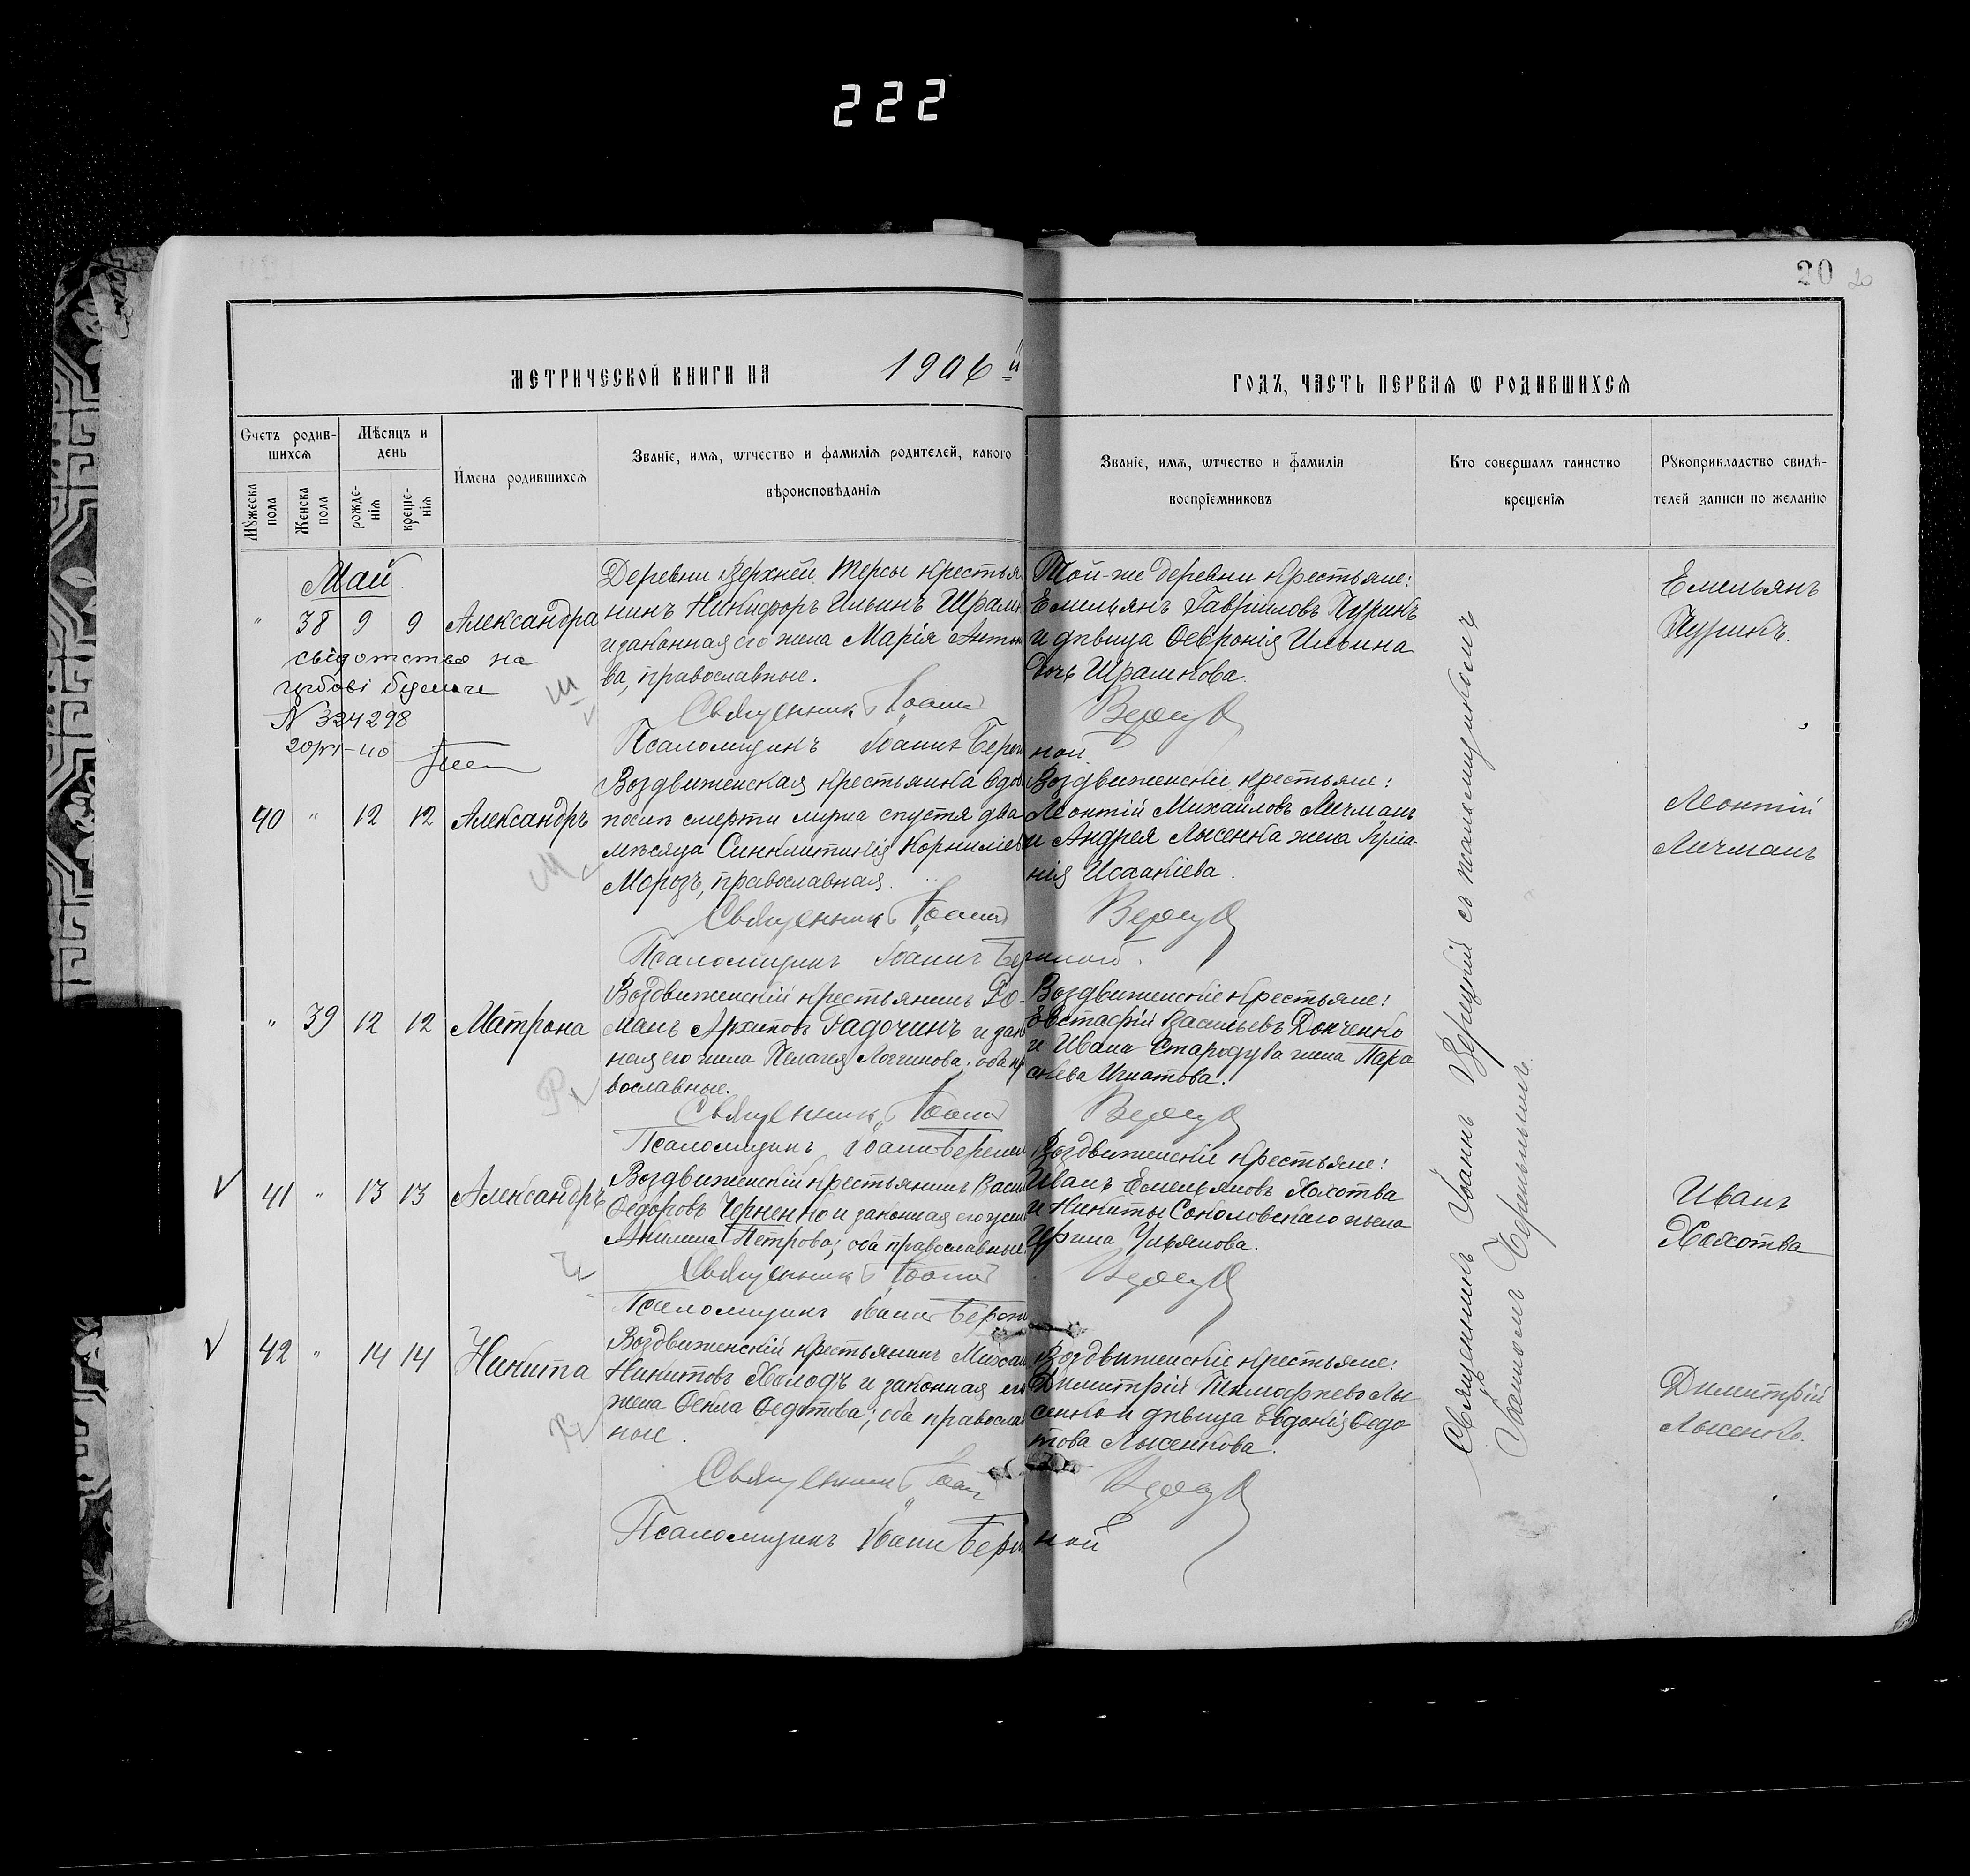 222
20 20
МЕТРИЧЕСКОЙ КНИГИ НА 1906 й
ГОДЪ, ЧАСТЬ ПЕРВАЯ Ѡ РОДИВШИХСЯ
Счетъ родив-
шихся
Мꙋжеска пола
Женска пола
Мѣсяцъ и
день
рожде-
нія
креще-
нія
Имена родившихся
Званіе, имя, ѡтчество и фамилія родителей, какого
вѣроисповѣданія
Званіе, имя, ѡтчество и фамилія
воспріемниковъ
Кто совершалъ таинство
крещенія
Рꙋкоприкладство свидѣ-
телей записи по желанію
Май.
" 38 9 9 Александра
свідотство на
гербові бумаги
N 324298
Деревни Верхней Терсы крестья
нинъ Никифоръ Ильинъ Шрам
и законная его жена Марія Антон
ва, православные.
Священник Іоанн
Псаломщикъ Іоаннъ Береж
Той-же деревни крестьяне:
Емельянъ Гавріиловъ Пурикъ
и дѣвица Феѵронія Ильина
дочь Шрамкова.
Верец
ной
Емельянъ
Пурикъ.
40 " 12 12 Александръ
Воздвиженская крестьянка вдо
послѣ смерти мужа спустя два
мѣсяца Синклитикія Корниліев
Морозъ, православная.
Священник Іоанн
Псаломщикъ Іоаннъ Бер
Воздвиженскіе крестьяне:
Леонтій Михайловъ Личманъ
и Андрея Лысенка жена
нія Исаакіева.
Верец
ной.
Леонтій
Личманъ
" 39 12 12 Матрона
Воздвиженскій крестьянинъ Ро-
манъ Архиповъ Гадочинъ и зако
ная его жена Пелагея Логгинова; оба пр
вославные.
Священник Іоанн
Псаломщикъ Іоаннъ Бережн
Воздвиженскіе крестьяне:
Евстафій Васильевъ Донченко
и Ивана Стародуба жена Пара
скева Игнатова.
Верец
41 " 13 13 Александръ
Воздвиженскій крестьянинъ Васи
Федоровъ Черненко и законная его жен
Акилина Петрова; оба православные.
Священник Іоанн
Псаломщикъ Іоаннъ Береж
Воздвиженскіе крестьяне:
Иванъ Емельяновъ Хохотва
и Никиты Соколовскаго жена
Ирина Ульянова.
Верец
Иванъ
Хохотва
42 " 14 14 Никита
Воздвиженскій крестьянинъ Михаи
Никитовъ Холодъ и законная его
жена Фекла Федотова; оба правосла
ные.
Священник Іоан
Псаломщикъ Іоаннъ Береж
Воздвиженскіе крестьяне:
Димитрій Тимофеевъ Лы
сенко и дѣвица Евдокія Федо
това Лысенкова.
Верец
ной
Димитрій
Лысенко.
Священникъ Іоаннъ Верецкій съ псаломщикомъ
Іоанномъ Бережнымъ.